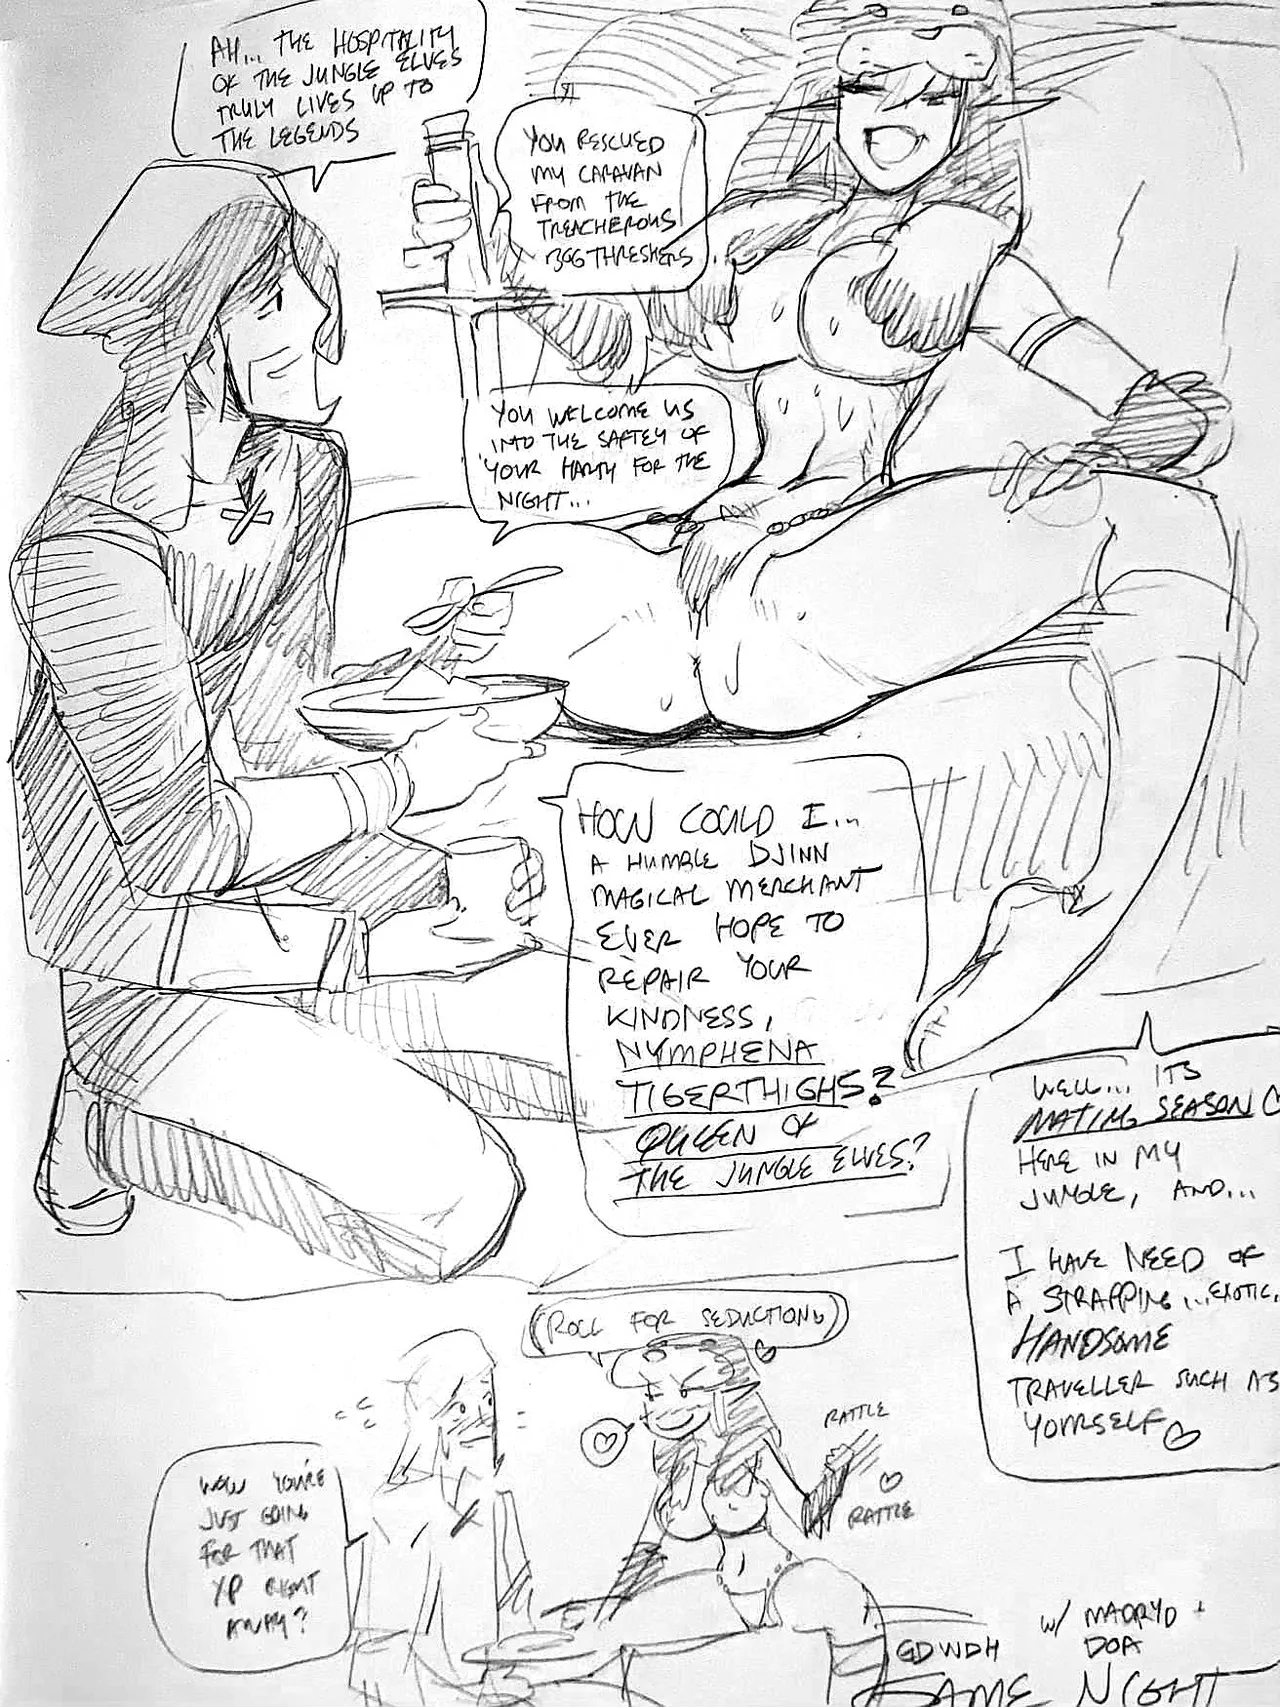 AH... THE HOSPITALITY
OF THE JUNGLE ELVES
TRULY LIVES UP TO
THE LEGENDS
YOU RESCUED
MY CARAVAN
FROM THE
TREACHEROUS
BOGTHRESHERS...
YOU WELCOME US
INTO THE SAFTEY OF
YOUR
FOR THE
NIGHT...
HOW COULD I...
A HUMBLE DJINN
MAGICAL MERCHANT
EVER HOPE TO
REPAIR YOUR
KINDNESS,
NYMPHENA
TIGERTHIGHS?
QUEEN OF
THE JUNGLE ELVES?
WELL... ITS
MATING SEASON ♡
HERE IN MY
JUNGLE, AND...
I HAVE NEED OF
A STRAPPING... EXOTIC,
HANDSOME
TRAVELLER SUCH AS
YOURSELF ♡
(ROLL FOR SEDUCTION)
♡
♡
RATTLE
♡
RATTLE
WOW YOU'RE
JUST GOING
FOR THAT
XP RIGHT
AWAY?
W/ MADRYD +
DOA
GDWDH
GAME NIGHT